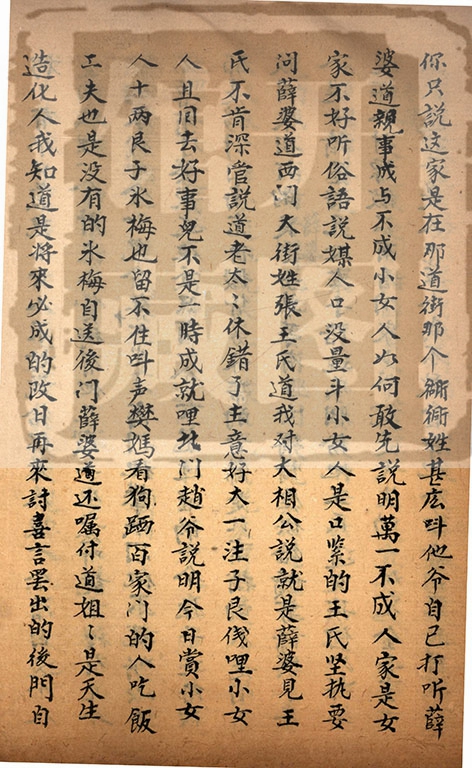 你只说这家是在那道街那个衚衕姓甚広呌他爷自己打听薛
婆道親事成与不成小女人如何敢先説明萬一不成人家是女
家不好听俗語説媒人口没量斗小女人是口紧的王氏坚执要
问薛婆道西関大街姓張王氏道我对大相公説就是薛婆見王
氏不肯深管説道老太〻休错了主意好大一注子艮伐哩小女
人且回去好事兒不是一時成就哩北门趙爷説明今日賞小女
人十两艮子氷梅也留不住呌声樊媽看狗䟴百家门的人吃飯
工夫也是没有的氷梅自送後门薛婆道还嘱付道姐〻是天生
造化人我知道是将來必成的改日再來討喜言罢出的後門自